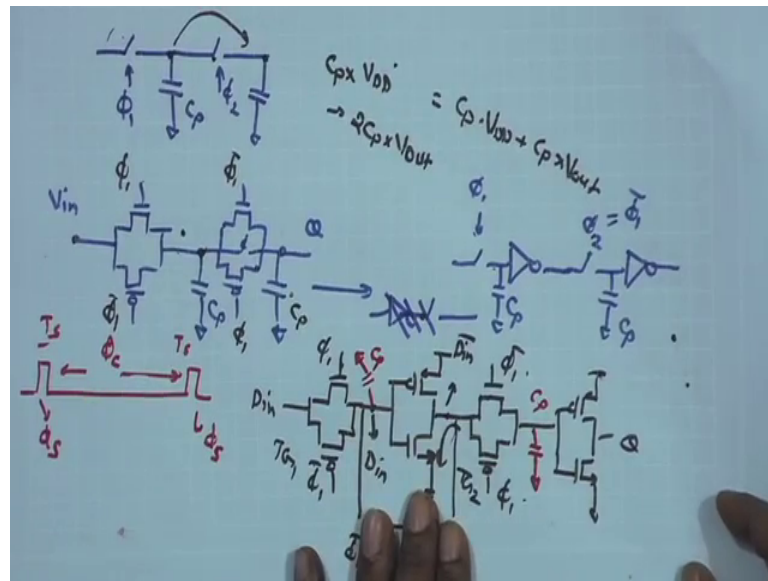 ϕ₁
Cp
ϕ₂
Cp × VDD = Cp · VDD + Cp × Vout
→ 2Cp × VOut
Vin
ϕ₁
ϕ̄₁
Q
ϕ̄₁
Cp
ϕ₁
Cp
ϕ₁
ϕ₂ = ϕ̄₁
Cp
Cp
Ts
ϕc
Ts
ϕs
ϕs
Din
ϕ₁
Cp
D̄in
ϕ̄₁
Cp
Q
TG₁
ϕ̄₁
Din
ϕ₁